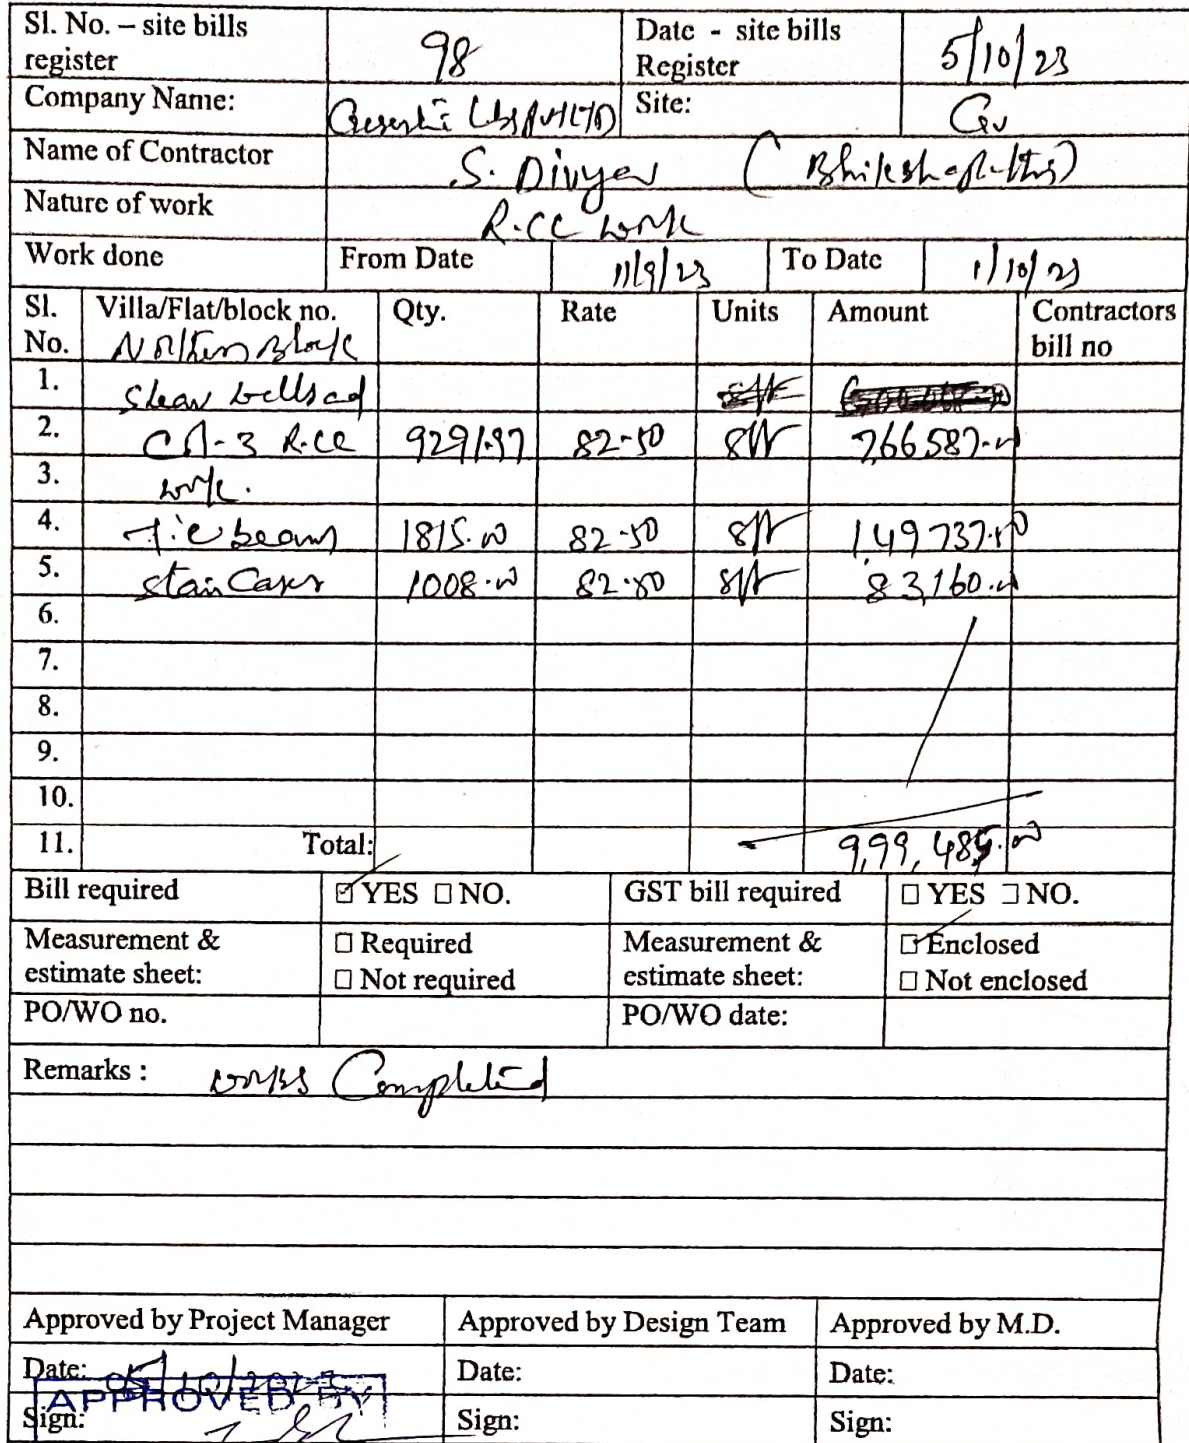 Sl. No. – site bills register 98 Date - site bills Register 5/10/23
Company Name: Site: Gv
Name of Contractor S. Divya (Bhikshapathi)
Nature of work R.CC work
Work done From Date 11/9/23 To Date 1/10/23
Sl. No. Villa/Flat/block no. Qty. Rate Units Amount Contractors bill no
Northern Block
1. Shear
2. R.CC 9291.97 82-50 sft 7,66,587.00
3. work.
4. Tie beams 1815.00 82-50 sft 1,49,737.50
5. stair Cases 1008.00 82.50 sft 83,160.00
6.
7.
8.
9.
10.
11. Total: 9,99,485.00
Bill required ☑ YES ☐ NO. GST bill required ☐ YES ☐ NO.
Measurement & estimate sheet: ☐ Required ☐ Not required Measurement & estimate sheet: ☑ Enclosed ☐ Not enclosed
PO/WO no. PO/WO date:
Remarks : works Completed
Approved by Project Manager Approved by Design Team Approved by M.D.
Date: Date: Date:
APPROVED BY
Sign: Sign: Sign: